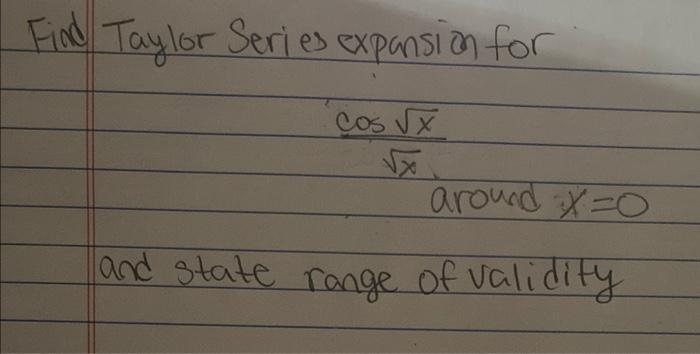 Find Taylor Series expansion for
cos √x
√x
around x=0
and state range of validity